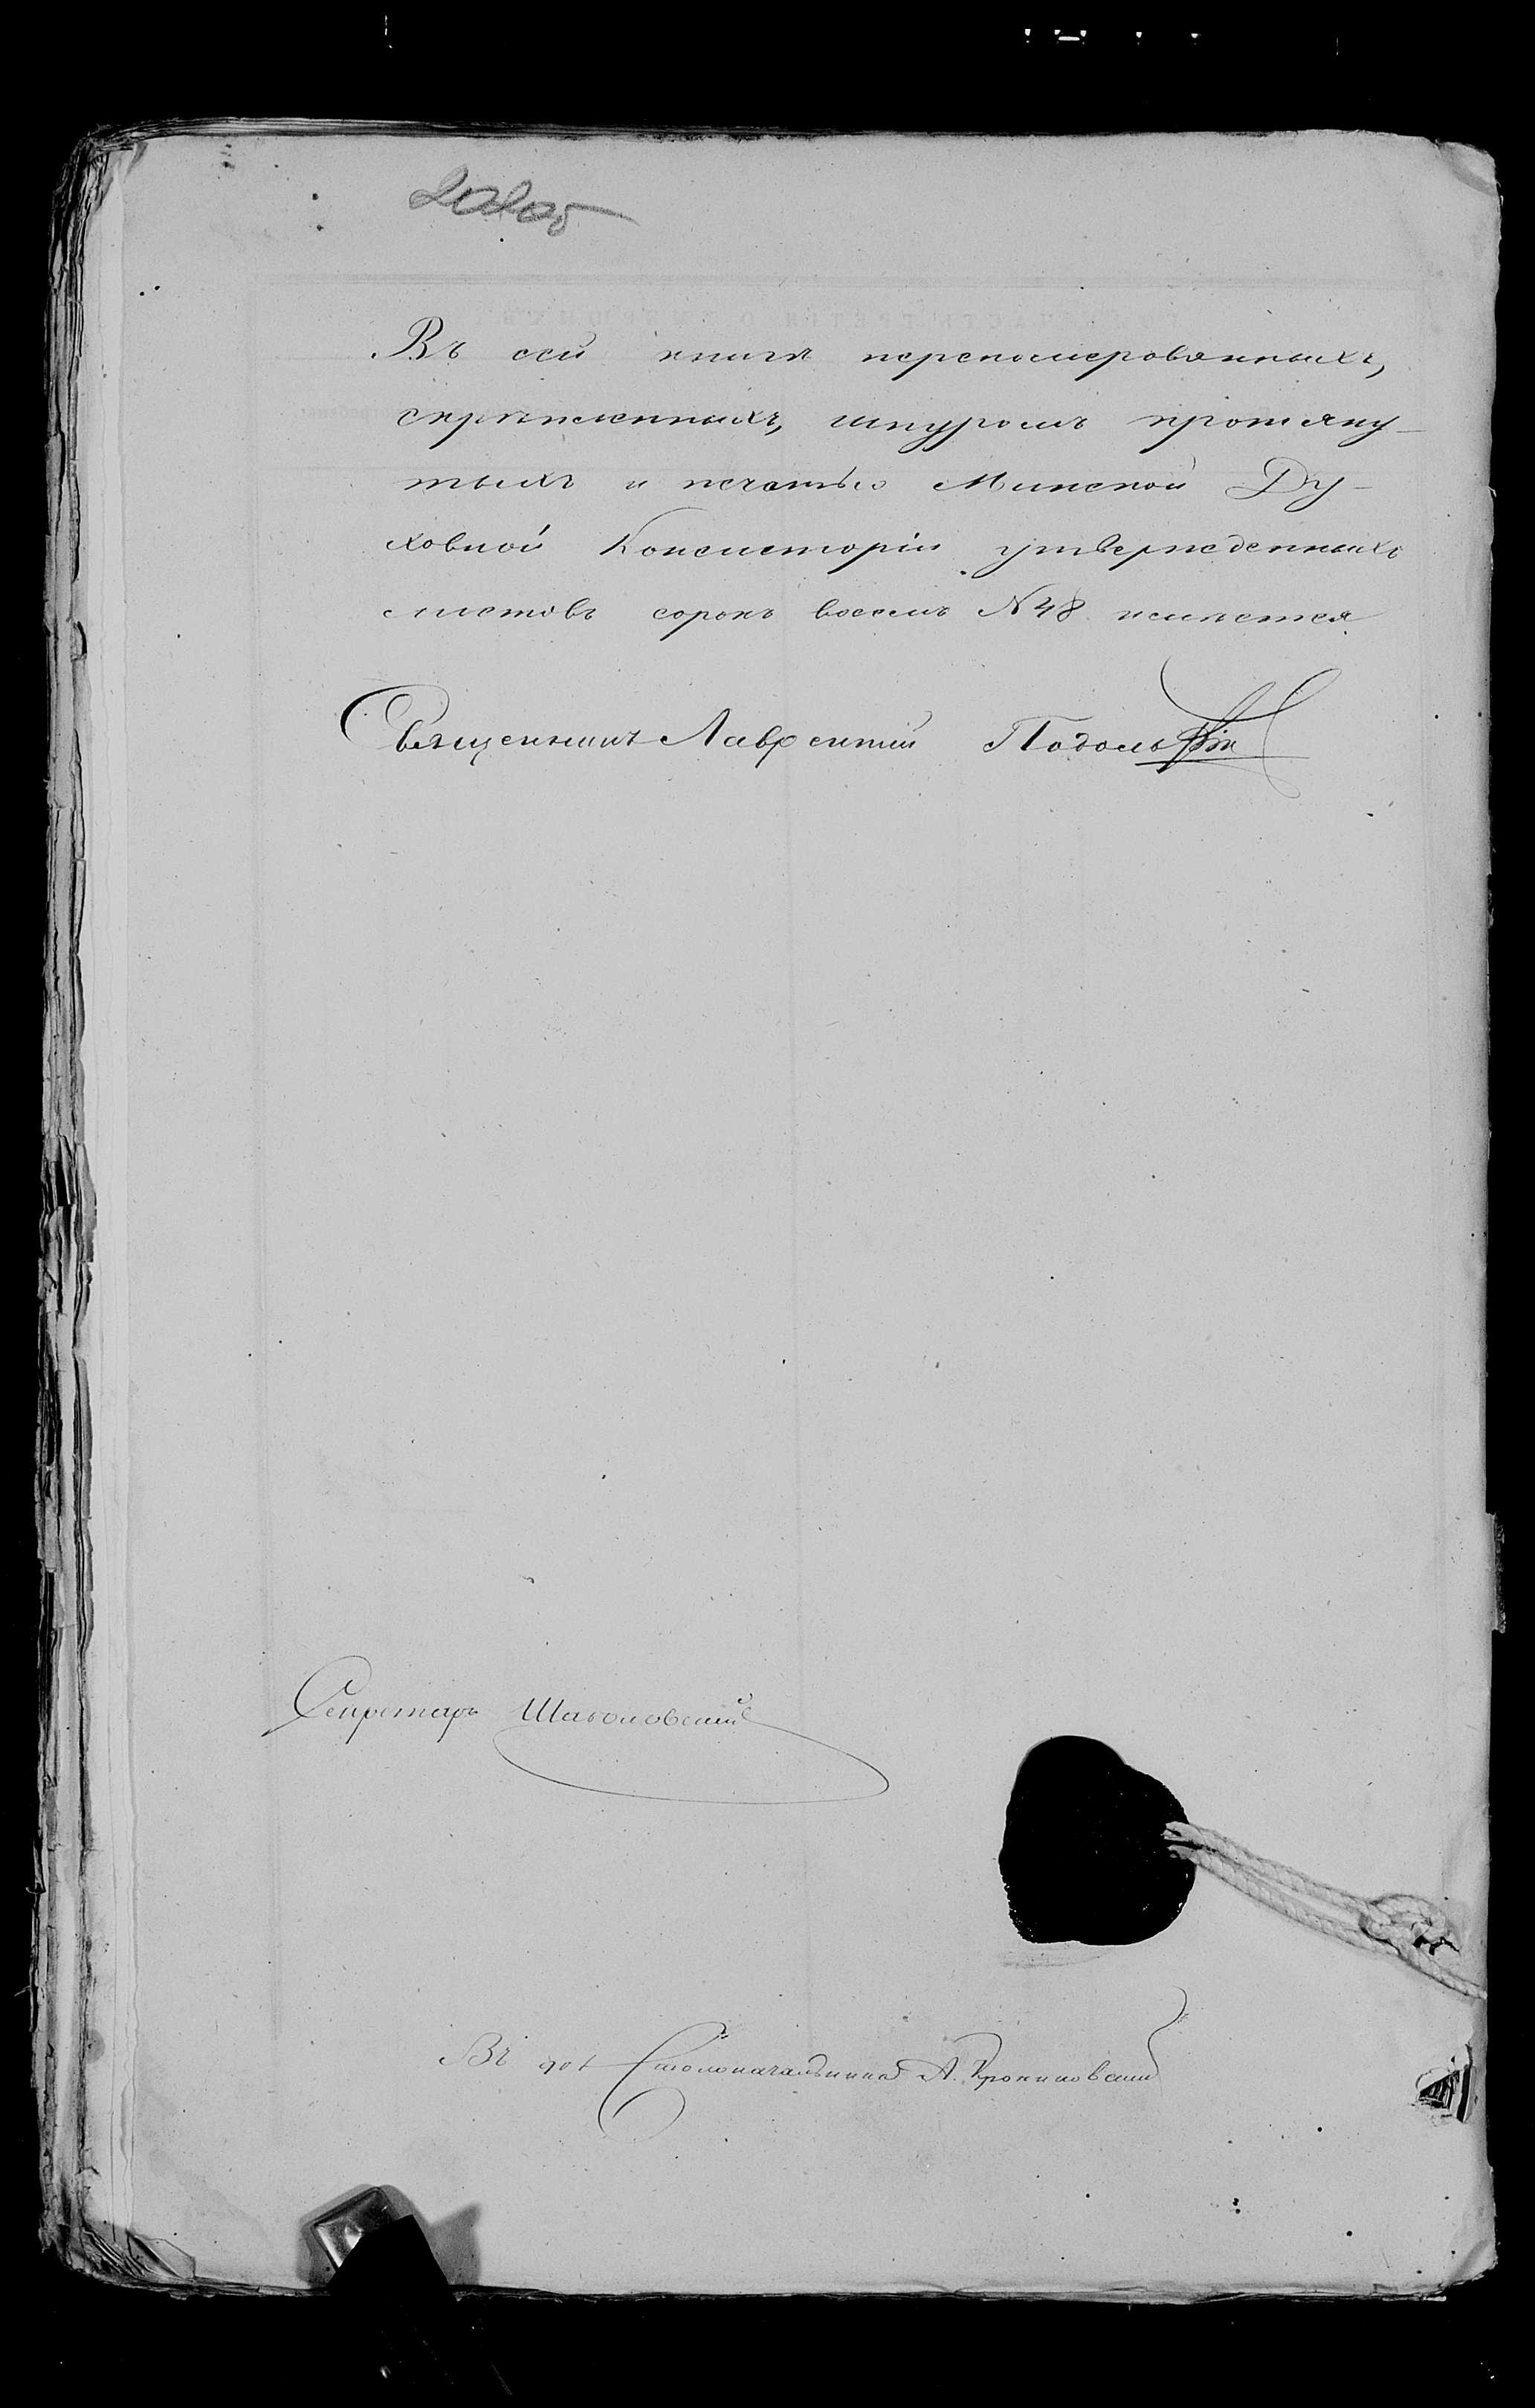 Въ сей книгѣ перепомерованныхъ,
скрѣпленныхъ, шнуромъ протяну-
тыхъ и печатью Минской Ду-
ховной Консисторіи утвержденныхъ
листовъ сорокъ восемь N 48 имѣется
Священникъ Лаврентій Подольскій
Секретарь
Въ дол Столоначальника А.